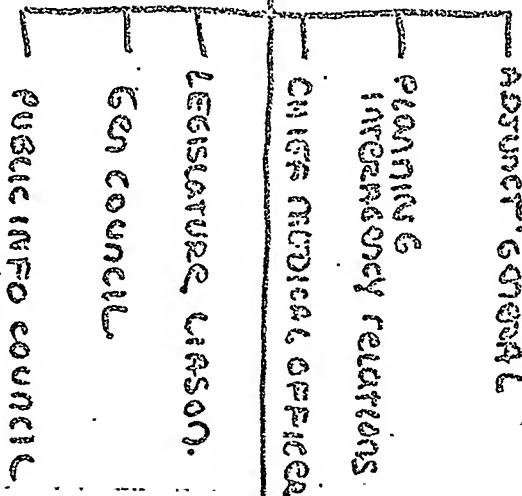 ADJUNCT GENERAL
PLANNING
INTERAGENCY relations
CHIEF MEDICAL OFFICER
LEGISLATURE LIASON.
Gen COUNCIL.
PUBLIC INFO COUNCIL